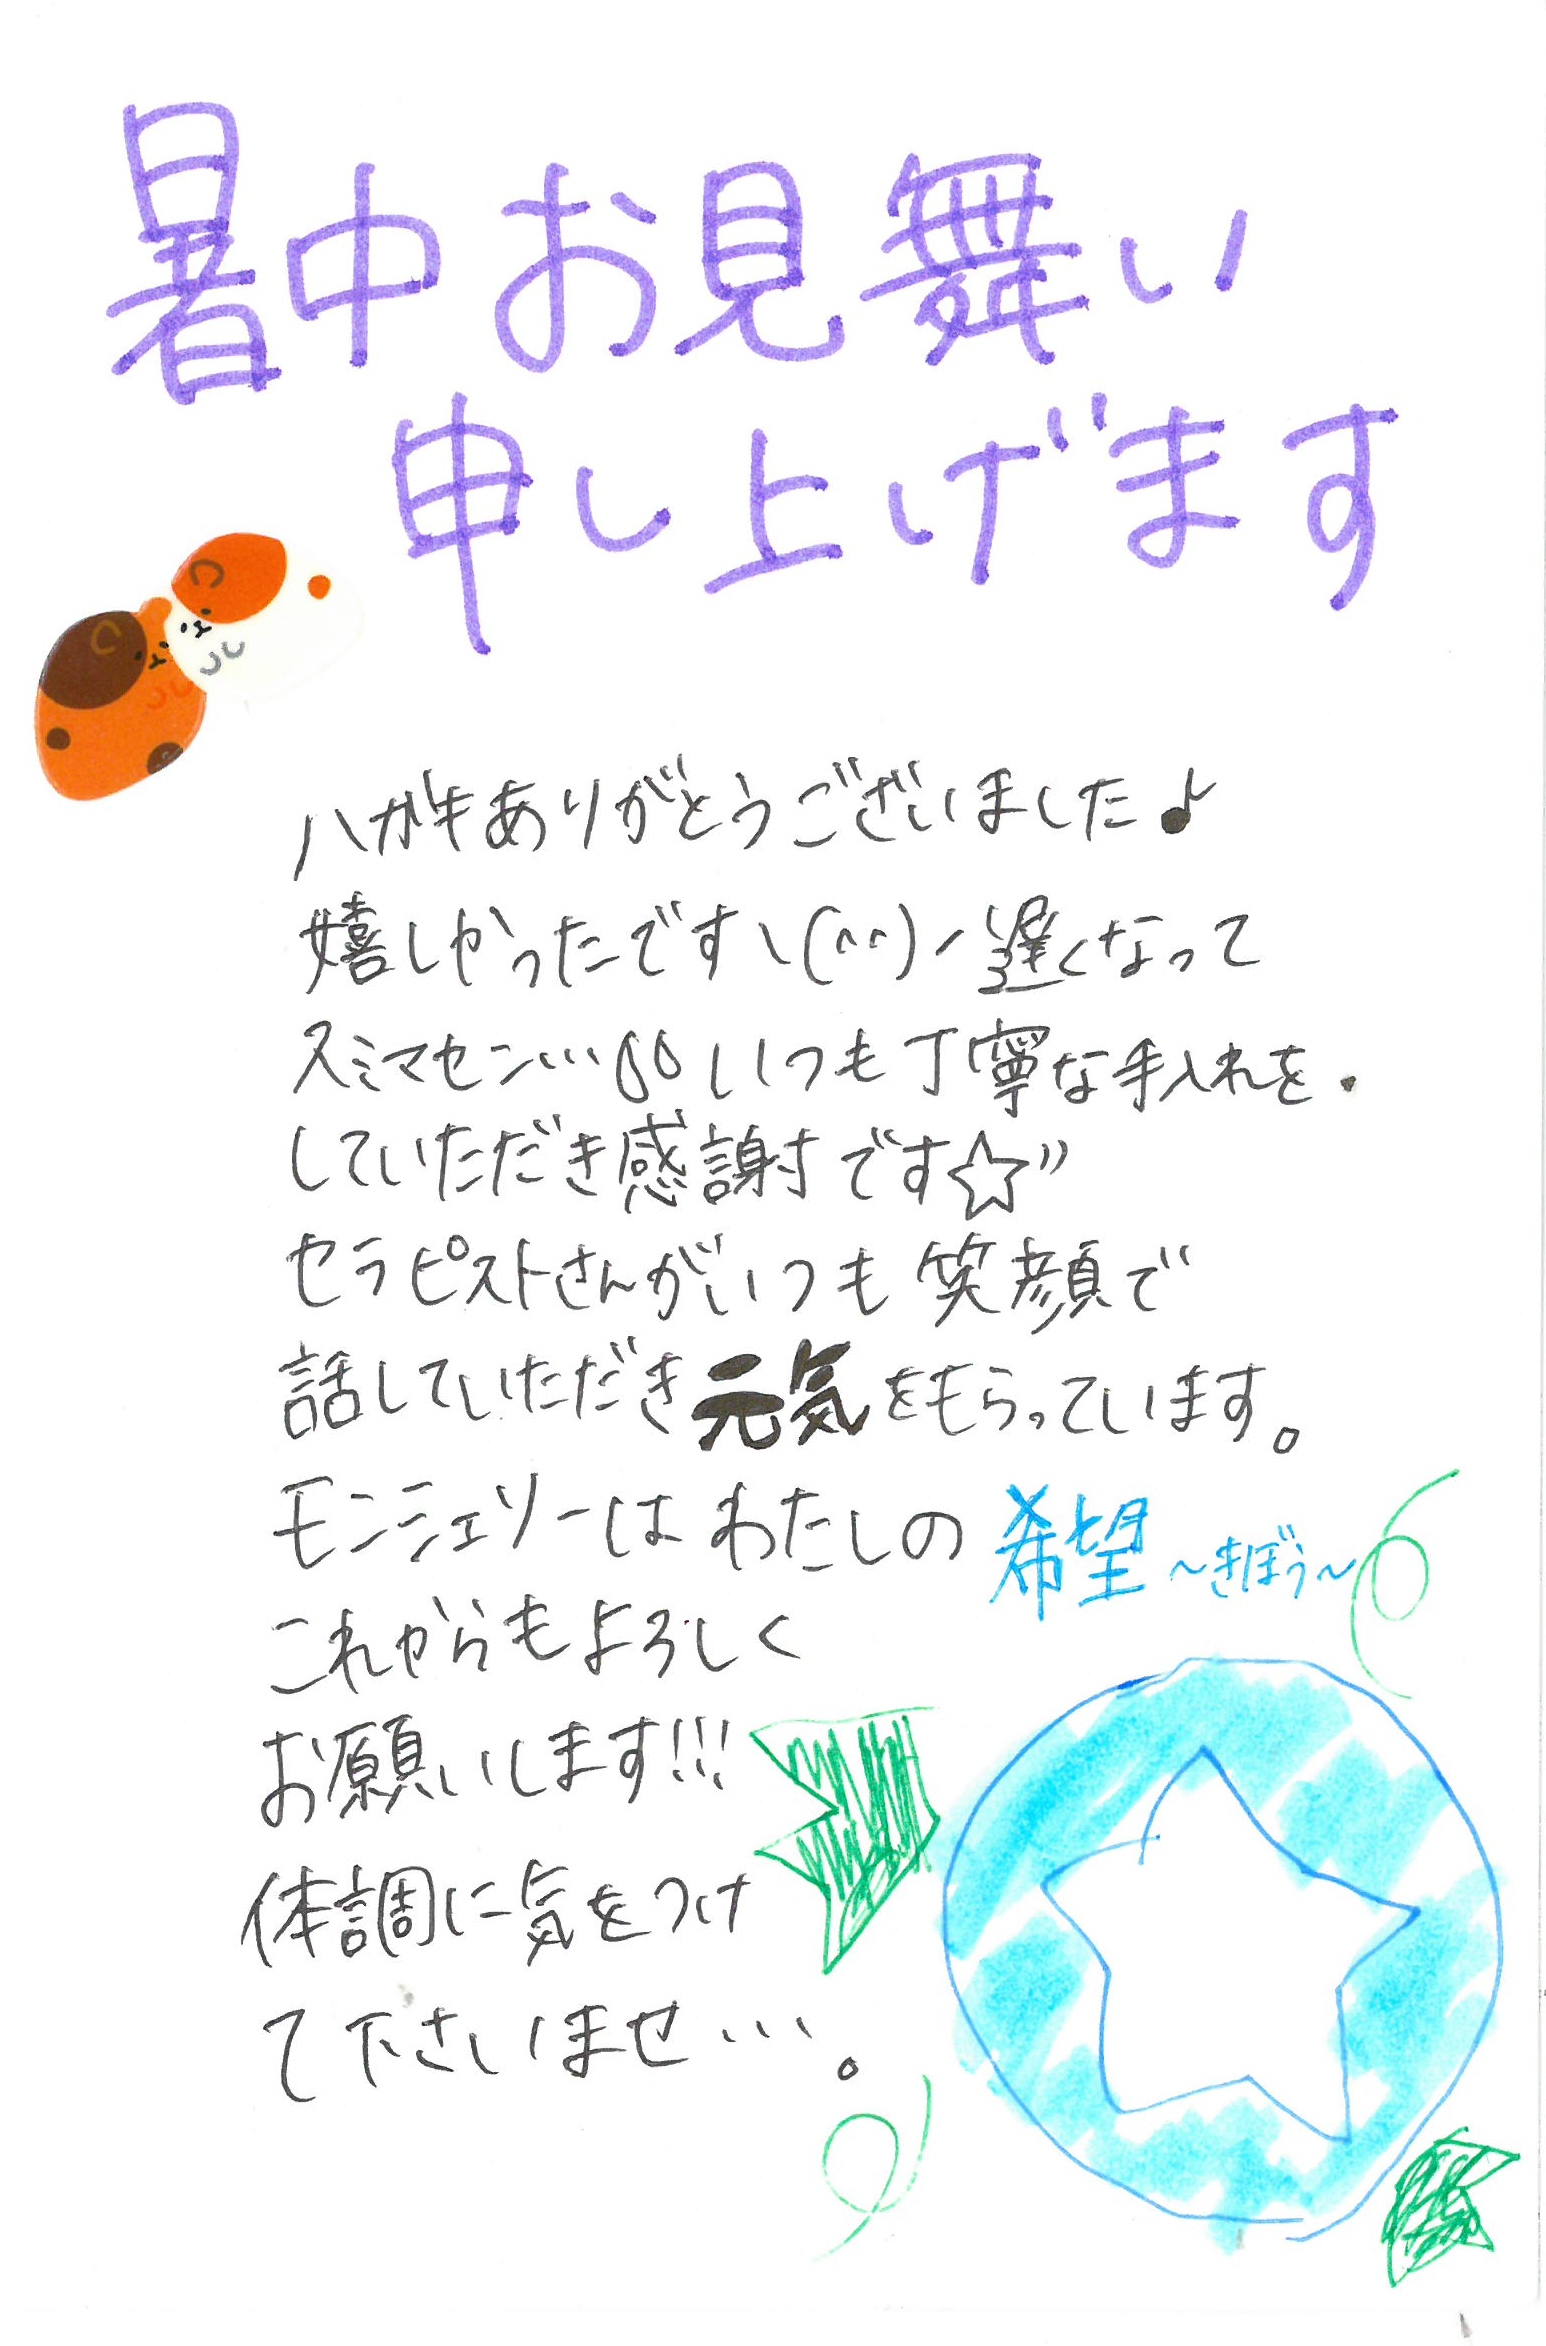 暑中お見舞い
申し上げます
ハガキありがとうございました♪
嬉しかったです\(^^)/遅くなって
スミマセン…いつも丁寧な手入れを
していただき感謝です☆"
セラピストさんがいつも笑顔で
話していただき元気をもらっています。
モンシェリーはわたしの希望~きぼう~
これからもよろしく
お願いします!!!
体調に気をつけ
て下さいませ…。